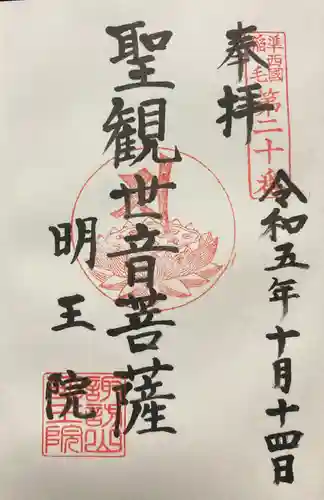 奉拝
準西國
稲毛
第二十番
令和五年十月十四日
聖観世音菩薩
明王院